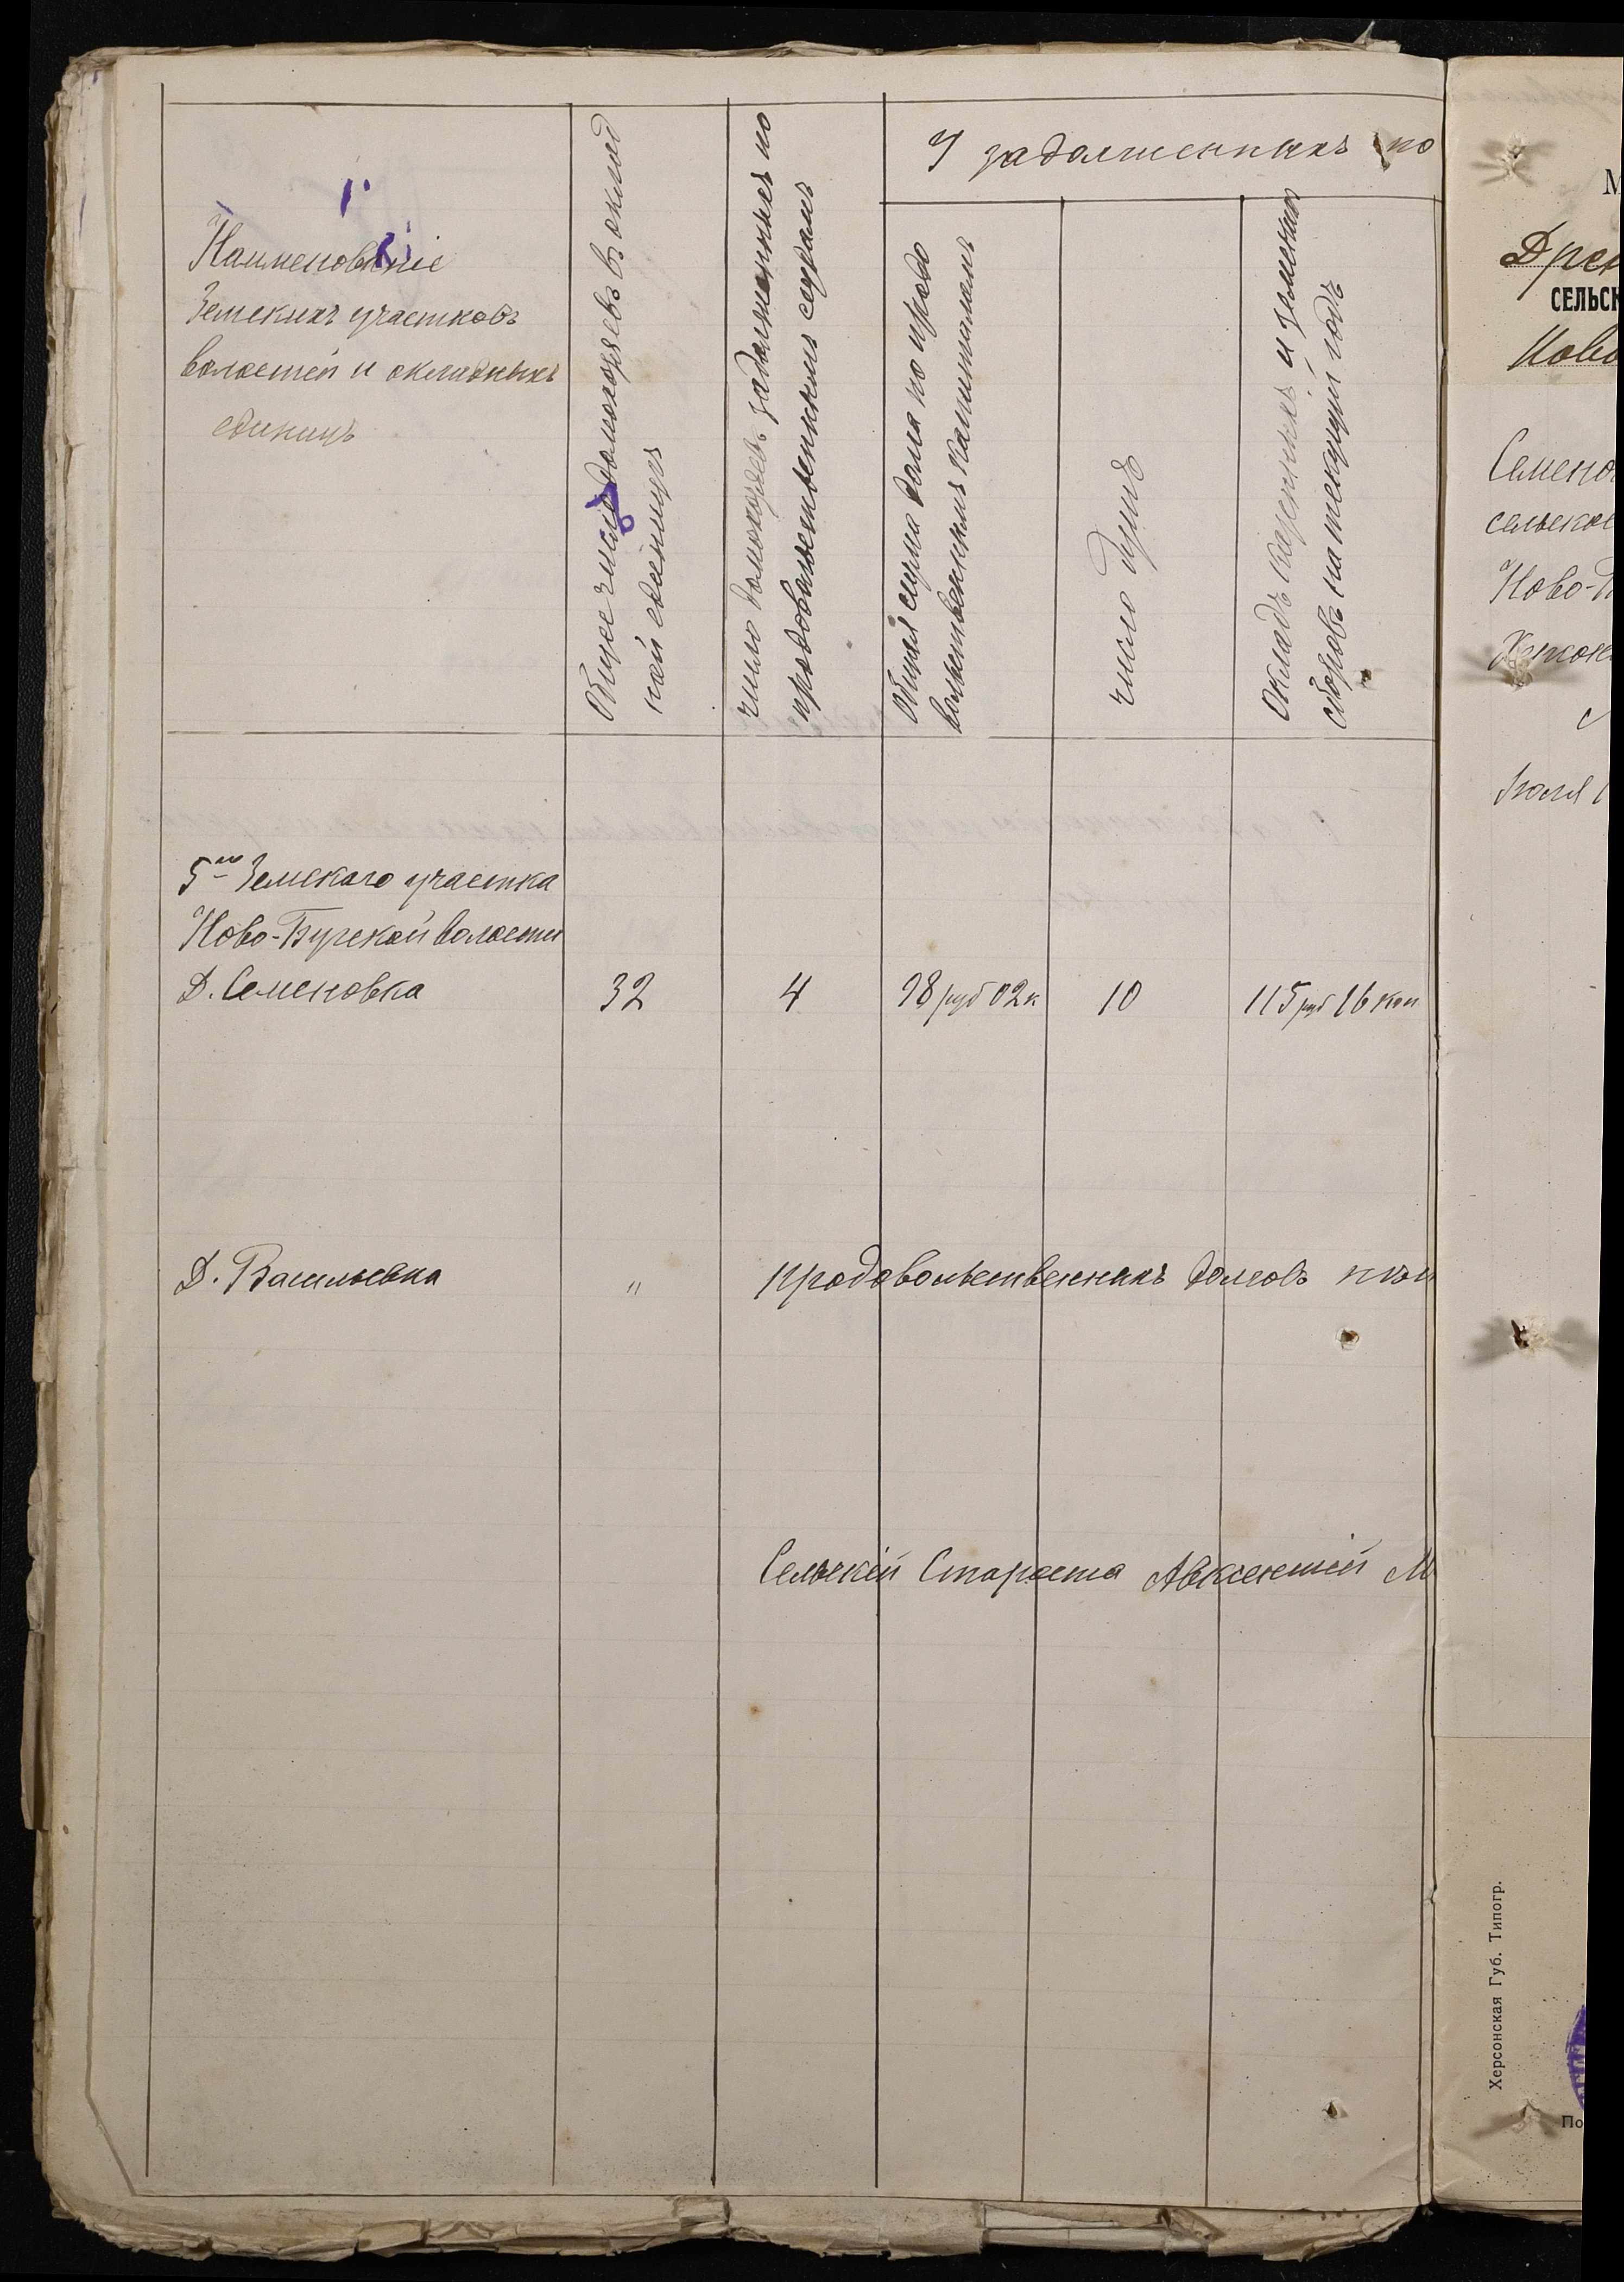 Наименованіе
Земскихъ участковъ
волостей и окладныхъ
единицъ
Общее число домохозяевъ въ оклад
ной единицѣ
число домохозяевъ, задолженныхъ по
продовольственнымъ ссудамъ
У задолженныхъ по
Общая сумма долга по продо
вольственнымъ капиталамъ
число душъ
Окладъ казенныхъ и земскихъ
сборовъ на текущій годъ
5го Земскаго участка
Ново-Бугской волости
Д. Семеновка 32 4 98 руб 02 к 10 115 руб 16 коп
Д. Васильевка " продовольственныхъ долговъ
Сельскій Староста Авксентій М
СЕЛЬСК
Ново-
Херсонская Губ. Типогр.
По